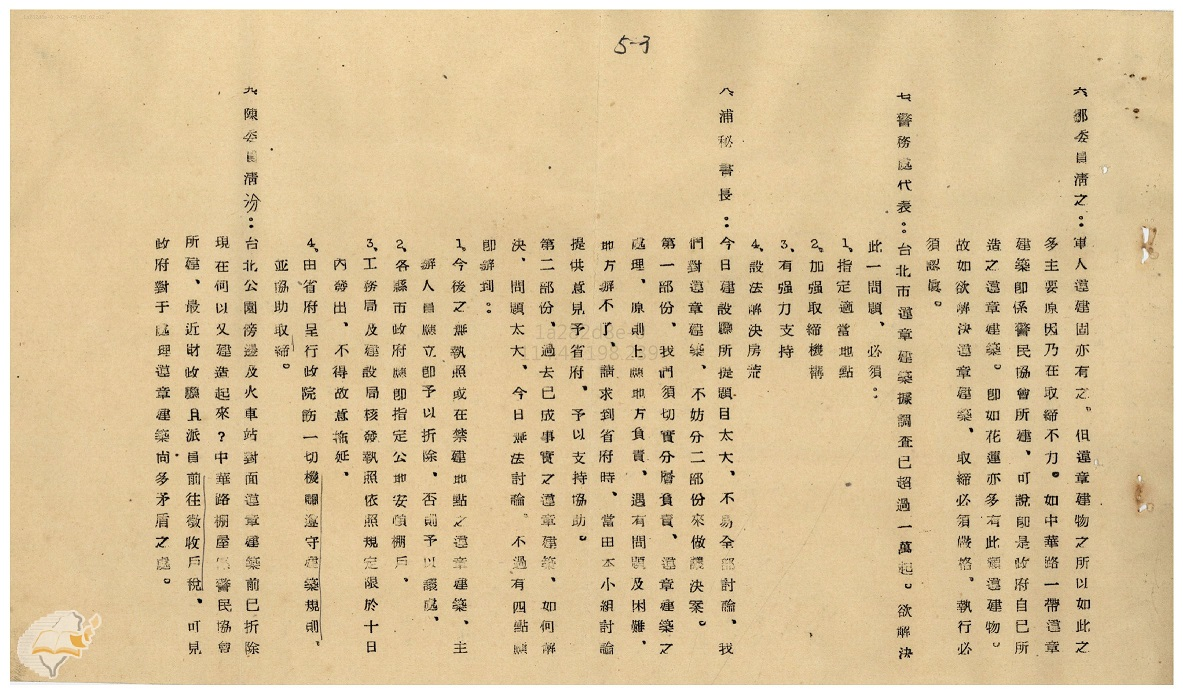 5-3
六、那委員清之：軍人違建固亦有之。但違章建物之所以如此之
多主要原因乃在取締不力。如中華路一帶違章
建築即係警民協會所建、可說即是政府自己所
造之違章建築。即如花蓮亦多有此類違建物。
故如欲解決違章建築、取締必須嚴格、執行必
須認真。
七、警務處代表：台北市違章建築據調查已超過一萬起。欲解決
此一問題、必須：
1、指定適當地點
2、加强取締機構
3、有强力支持
4、設法解決房荒
八、浦秘書長：今日建設廳所提題目太大、不易全部討論、我
們對違章建築、不妨分二部份來做議決案。
第一部份、我們須切實分層負責、違章建築之
處理、原則上應地方負責、遇有問題及困難、
地方辦不了、請求到省府時、當由本小組討論
提供意見予省府、予以支持協助。
第二部份、過去已成事實之違章建築、如何解
決、問題太大、今日無法討論。不過有四點應
即辦到：
1、今後之無執照或在禁建地點之違章建築、主
辦人員應立即予以拆除、否則予以議處、
2、各縣市政府應即指定公地安頓棚戶。
3、工務局及建設局核發執照依照規定限於十日
內發出、不得故意拖延、
4、由省府呈行政院飭一切機關遵守建築規則、
並協助取締。
九、陳委員清汾：台北公園傍邊及火車站對面違章建築前已折除
現在何以又建造起來？中華路棚屋係警民協會
所建、最近財政廳且派員前往徵收戶稅、可見
政府對于處理違章建築尚多矛盾之處。